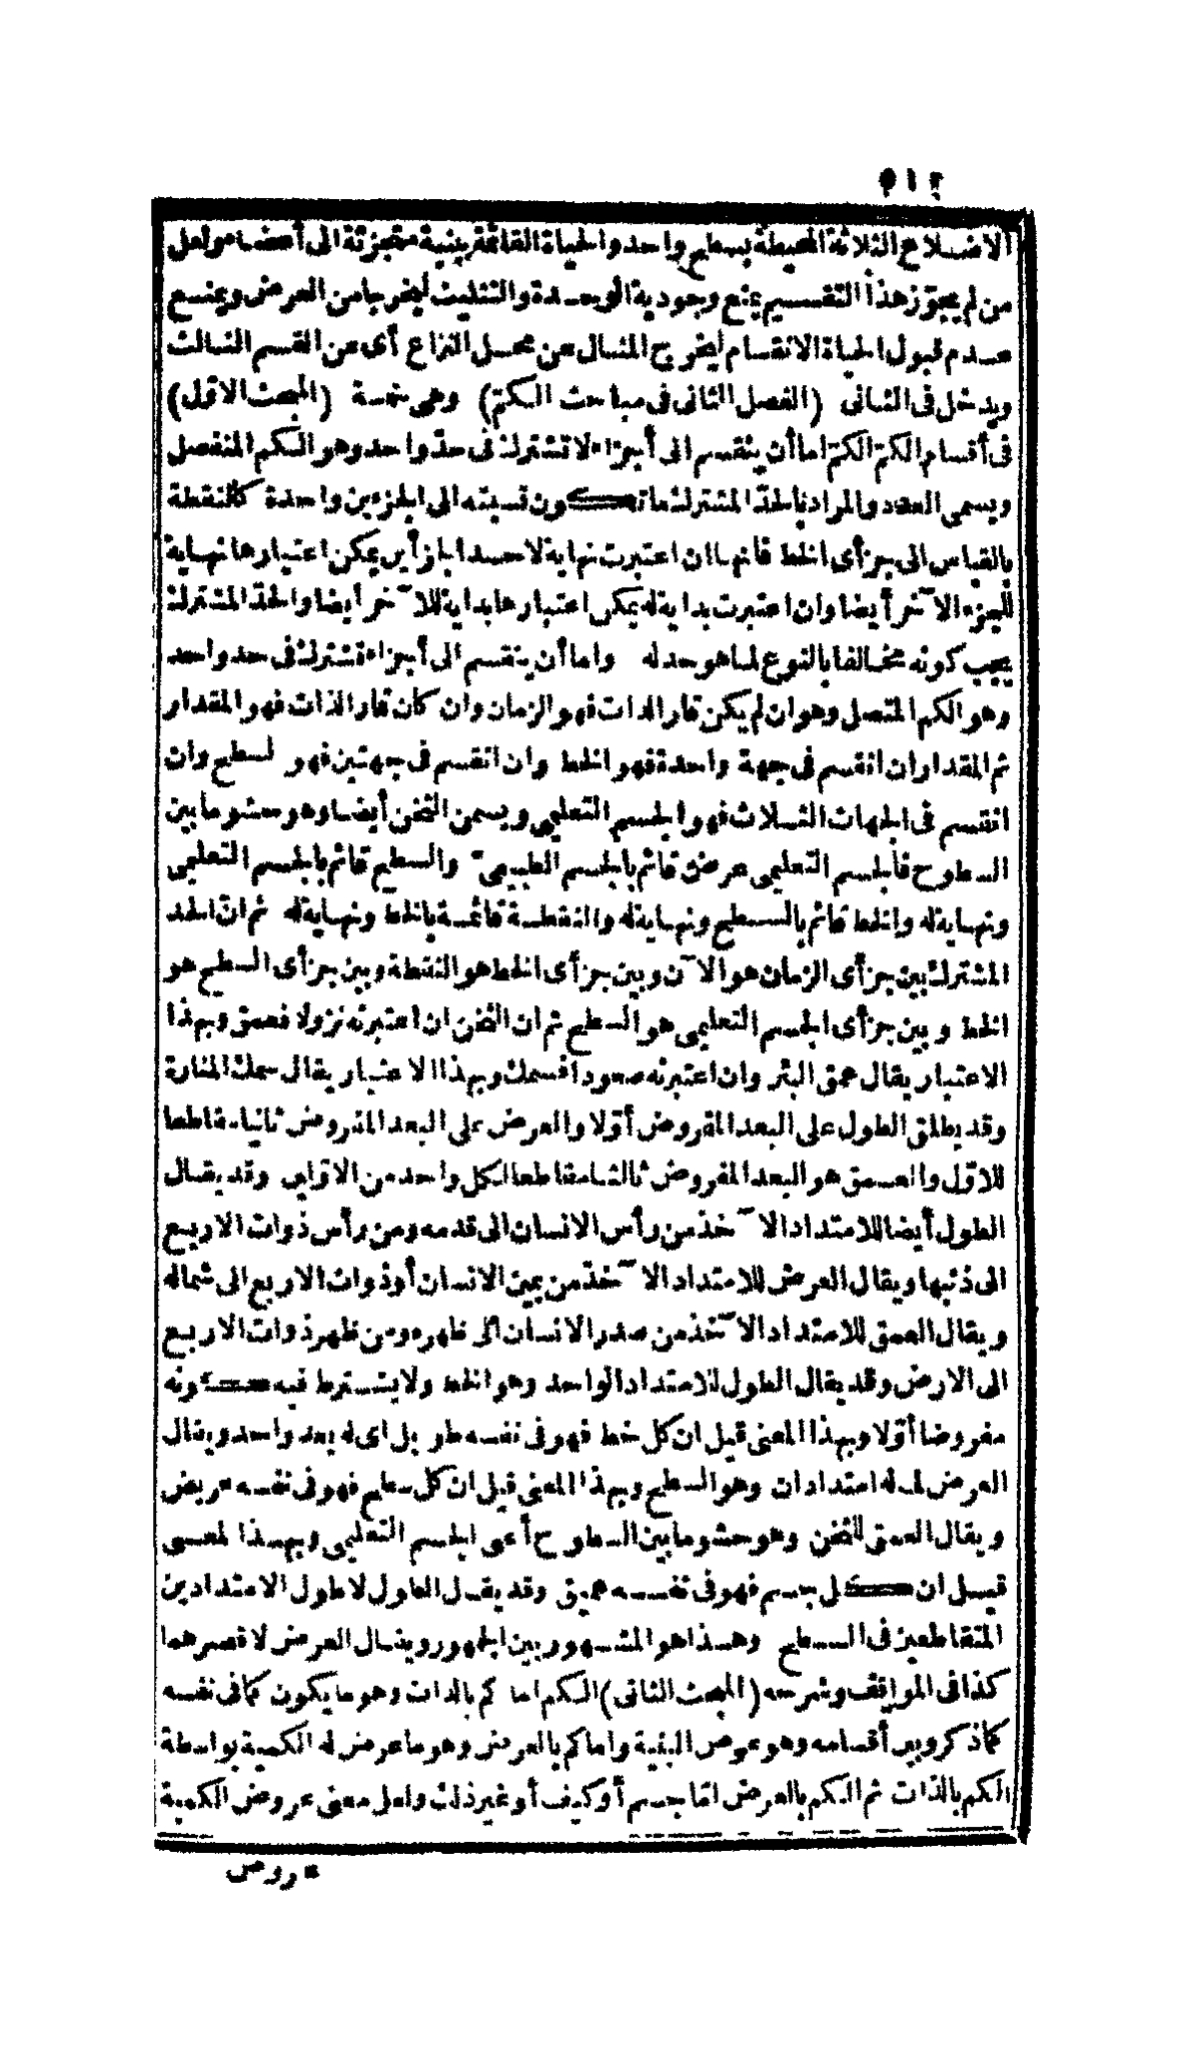 ٥١٢
الاضلاع الثلاثة المحيطة بسطح واحد والحياة القائمة ببنية متجزئة الى أعضاء ولعل
من لم يجوز هذا التقسيم يمنع وجودية الوحدة والتثليث ليخرجا من العرض ويمنع
عدم قبول الحياة الانقسام ليخرج المثال عن محل النزاع أى عن القسم الثالث
ويدخل فى الثانى (الفصل الثانى فى مباحث الكم) وهى خمسة (المبحث الاول)
فى أقسام الكم الكم اما أن ينقسم الى أجزاء لا تشترك فى حد واحد وهو الكم المنفصل
ويسمى العدد والمراد بالحد المشترك ما تكون نسبته الى الجزءين واحدة كالنقطة
بالقياس الى جزأى الخط فانها ان اعتبرت نهاية لاحد الجزأين يمكن اعتبارها نهاية
للجزء الآخر أيضا وان اعتبرت بداية له يمكن اعتبارها بداية للآخر أيضا والحد المشترك
يجب كونه مخالفا بالنوع لما هو حد له واما أن ينقسم الى أجزاء تشترك فى حد واحد
وهو الكم المتصل وهو ان لم يكن قار الذات فهو الزمان وان كان قار الذات فهو المقدار
ثم المقدار ان انقسم فى جهة واحدة فهو الخط وان انقسم فى جهتين فهو لسطح وان
انقسم فى الجهات الثلاث فهو الجسم التعليمى ويسمى الثخن أيضا وهو حشو ما بين
السطوح فالجسم التعليمى عرض قائم بالجسم الطبيعى والسطح قائم بالجسم التعليمى
ونهاية له والخط قائم بالسطح ونهاية له والنقطة قائمة بالخط ونهاية له ثم ان الحد
المشترك بين جزأى الزمان هو الآن وبين جزأى الخط هو النقطة وبين جزأى السطح هو
الخط وبين جزأى الجسم التعليمى هو السطح ثم ان الثخن ان اعتبرته نزولا فعمق وبهذا
الاعتبار يقال عمق البئر وان اعتبرته صعودا فسمك وبهذا الاعتبار يقال سمك المنارة
وقد يطلق الطول على البعد المفروض أولا والعرض على البعد المفروض ثانيا مقاطعا
للاول والعمق هو البعد المفروض ثالثا مقاطعا لكل واحد من الاولين وقد يقال
الطول أيضا للامتداد الآخذ من رأس الانسان الى قدمه ومن رأس ذوات الاربع
الى ذنبها ويقال العرض للامتداد الآخذ من يمين الانسان أو ذوات الاربع الى شماله
ويقال العمق للامتداد الآخذ من صدر الانسان الى ظهره ومن ظهر ذوات الاربع
الى الارض وقد يقال الطول للامتداد الواحد وهو الخط ولا يشترط فيه كونه
مفروضا أولا وبهذا المعنى قيل ان كل خط فهو فى نفسه طويل اى له بعد واحد ويقال
العرض لما له امتدادان وهو السطح وبهذا المعنى قيل ان كل سطح فهو فى نفسه عريض
ويقال العمق للثخن وهو حشو ما بين السطوح أعنى الجسم التعليمى وبهذا لمعنى
قيل ان كل جسم فهو فى نفسه عميق وقد يقال الطول لاطول الامتدادين
المتقاطعين فى السطح وهذا هو المشهور بين الجمهور ويقال العرض لاقصرهما
كذا فى المواقف وشرحه (المبحث الثانى) الكم اما كم بالذات وهو ما يكون كما فى نفسه
كما ذكر وبين أقسامه وهو عروض البنية واما كم بالعرض وهو ما عرض له الكمية بواسطة
الكم بالذات ثم الكم بالعرض اما جسم أو كيف أو غير ذلك ولعل معنى عروض الكمية
عروض